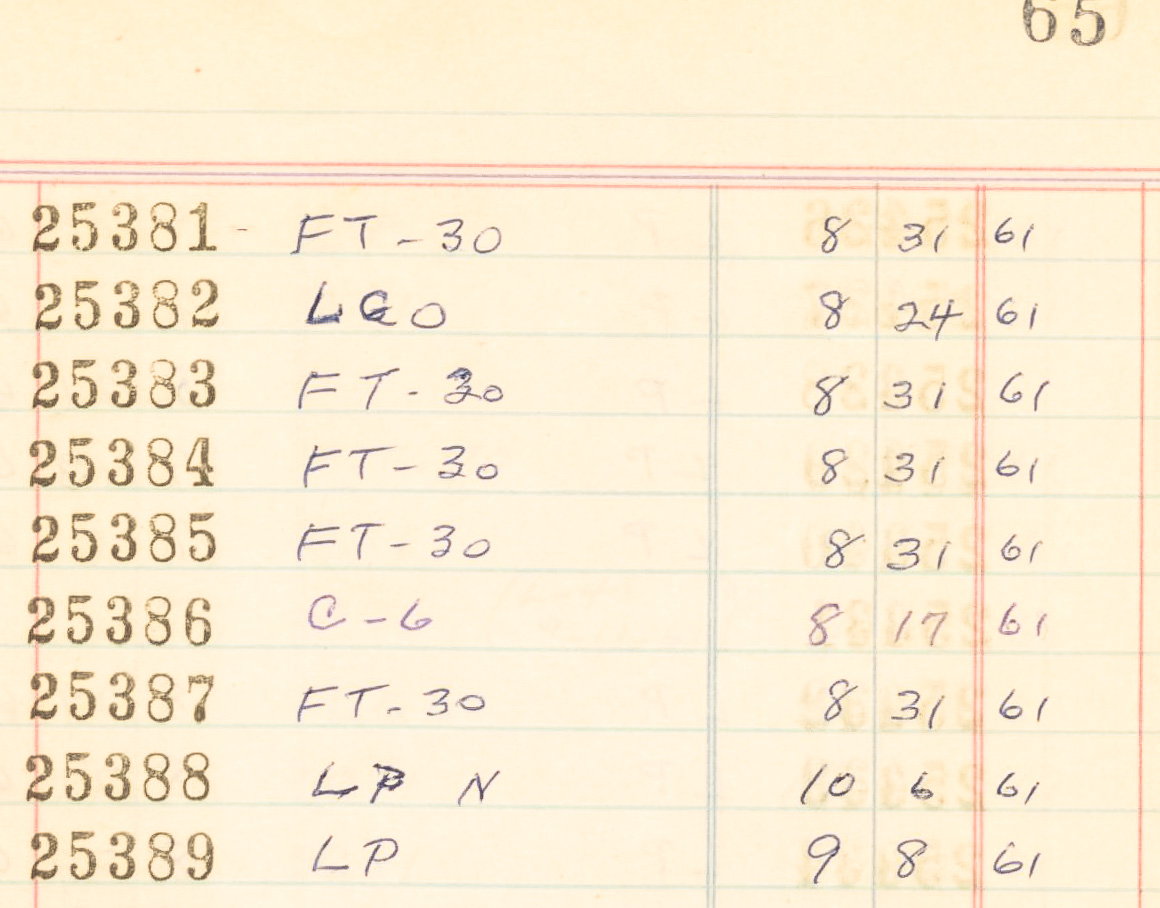 65
25381 - FT-30 8 31 61
25382 LGO 8 24 61
25383 FT-30 8 31 61
25384 FT-30 8 31 61
25385 FT-30 8 31 61
25386 C-6 8 17 61
25387 FT-30 8 31 61
25388 LP N 10 6 61
25389 LP 9 8 61